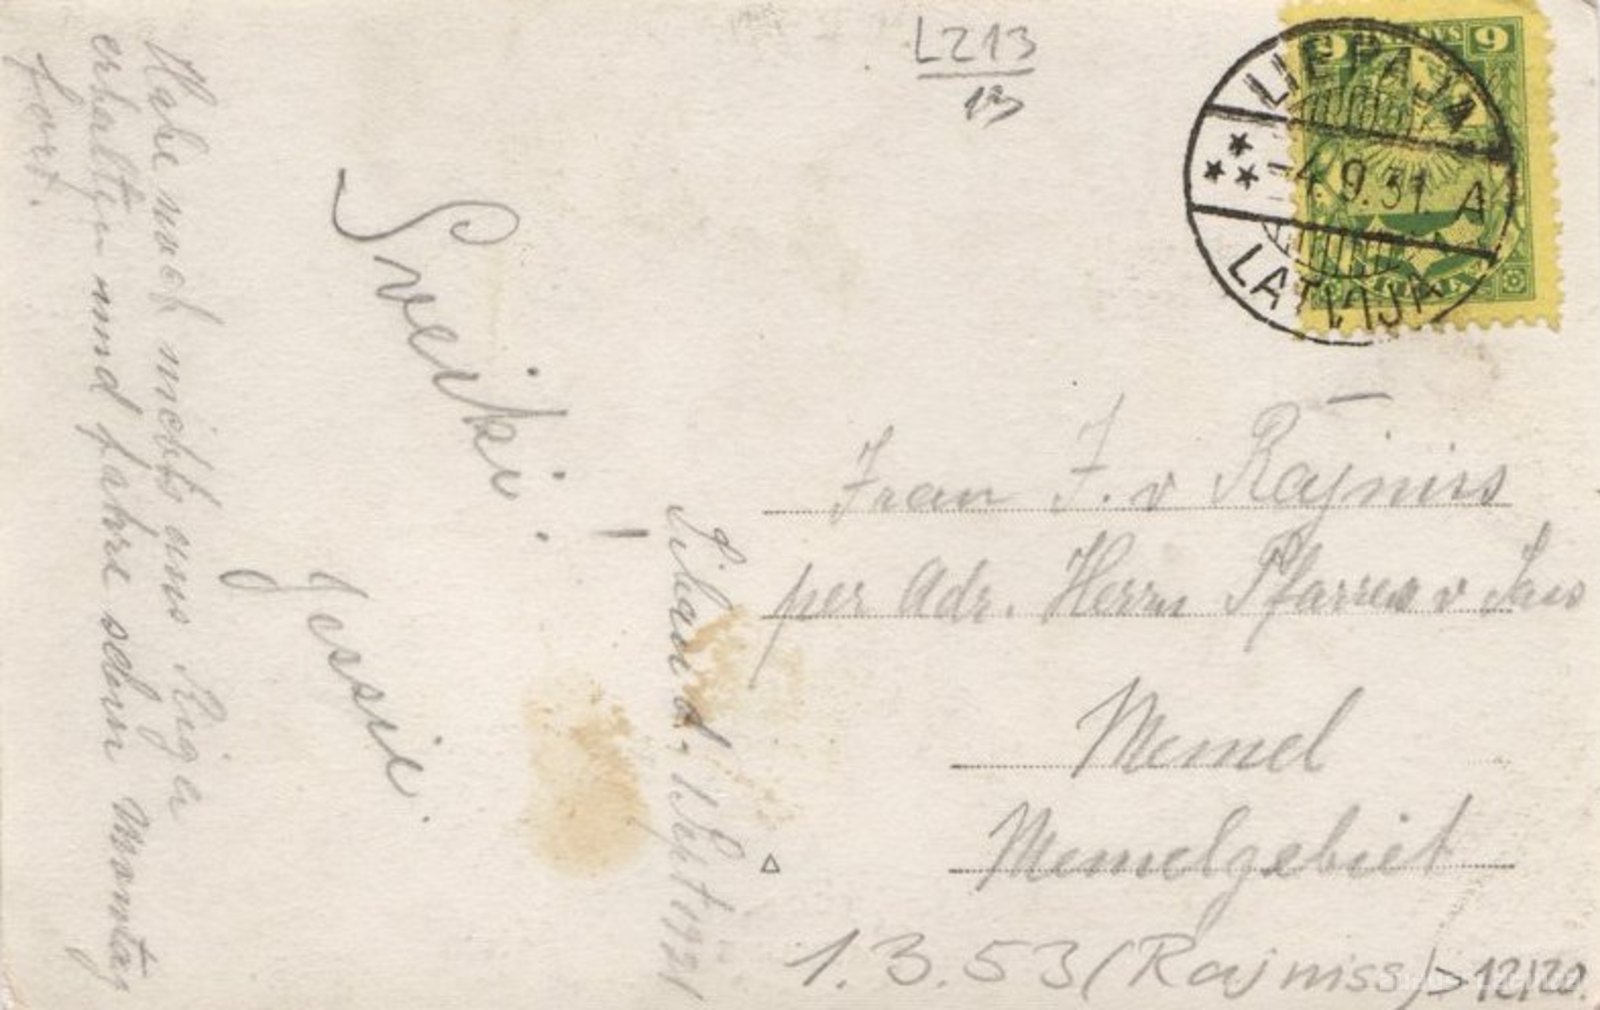 L213
13
6 SANTIMI 6
LIEPAJA
-4.9.31 A
LATVIJA
LATVIJA
Habe noch nicht aus Riga
erhalten und fahre schon montag
fort.
Sveiki!
Jessie.
Libau d. 1 Sept 1931
Frau J. v Rajniss
per Adr. Herrn Pfarrer v
Memel
Memelgebiet
1.3.53 (Rajniss) > 12/20.